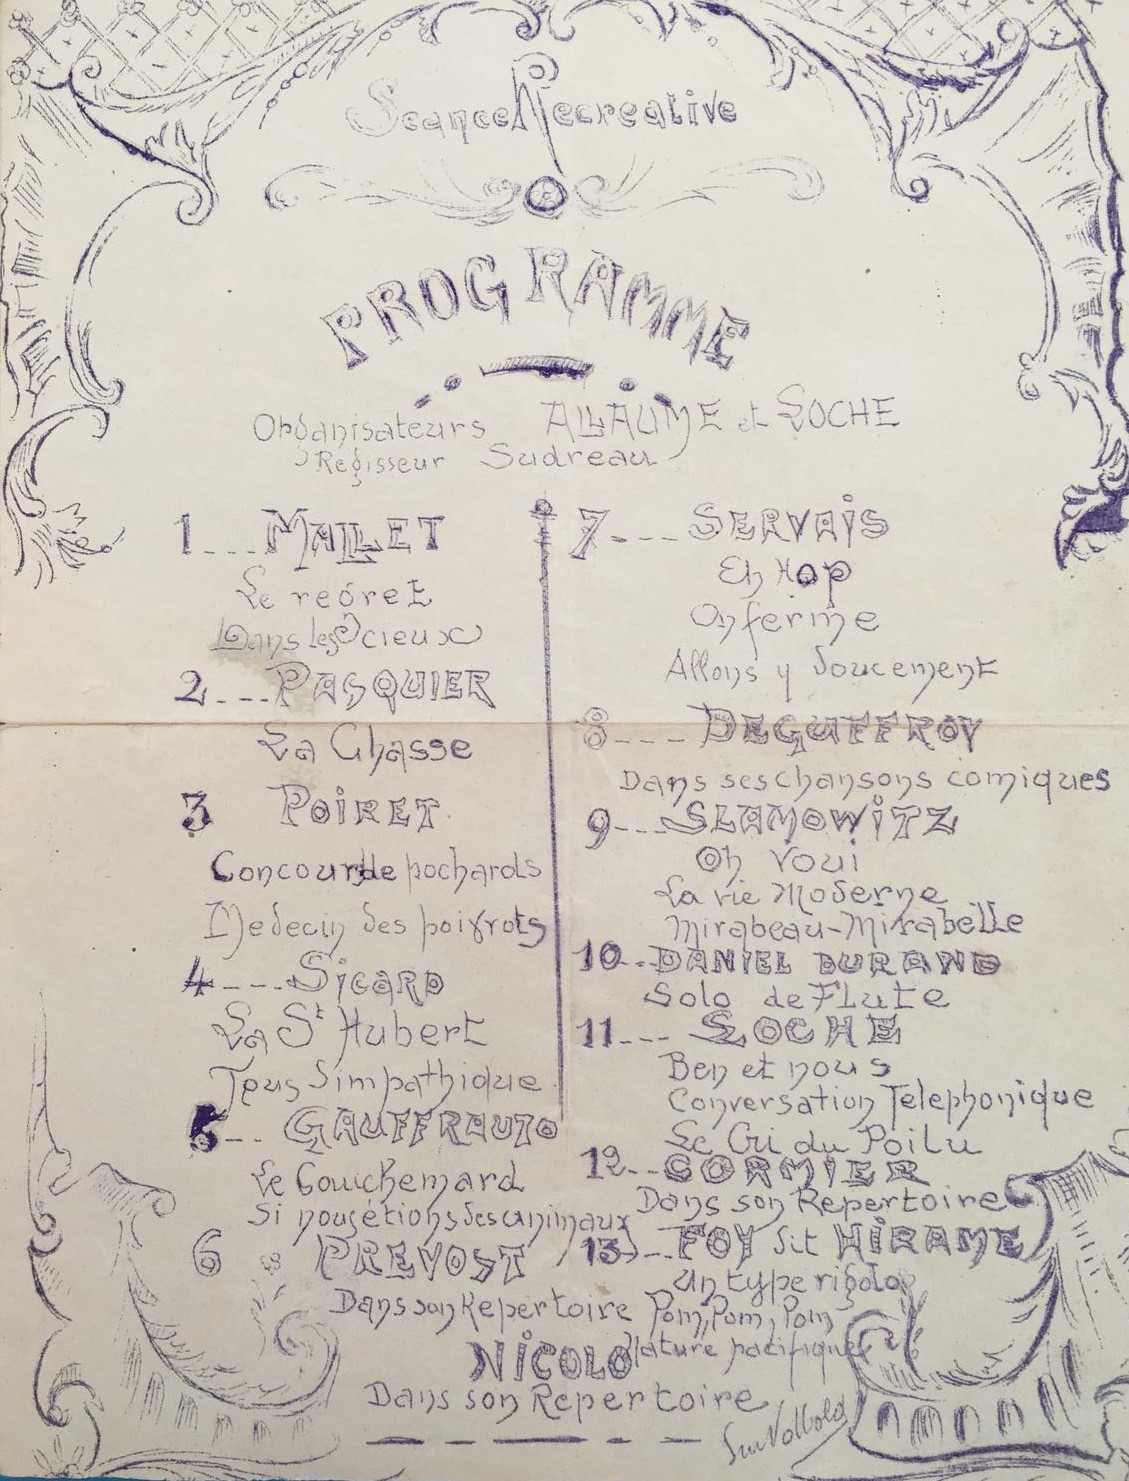 Seance Récreative
PROGRAMME
Organisateurs ALLAUME et LOCHE
Régisseur Sudreau
1 ... MALLET
Le regret
Dans les cieux
2 ... PASQUIER
La Chasse
3 POIRET
Concours de pochards
Medecin des poivrots
4 ---- SICARD
La St Hubert
Tous Simpathique
5 -- GAUFFRAUTO
Le Couickemard
Si nous etions des animaux
6 PREVOST
Dans son Repertoire
7 ---- SERVAIS
Eh Hop
On ferme
Allons y doucement
8 ---- DEGUFFROY
Dans ses chansons comiques
9 --- SLAMOWITZ
Oh Voui
La vie Moderne
Mirabeau-Mirabelle
10 -- DANIEL DURAND
Solo de Flute
11 --- LOCHE
Ben et nous
Conversation Telephonique
Le Cri du Poilu
12 -- CORMIER
Dans son Repertoire
13 -- FOY dit HIRAME
un type rigolo
Pom, Pom, Pom
Nature pacifique
NICOLO
Dans son Repertoire